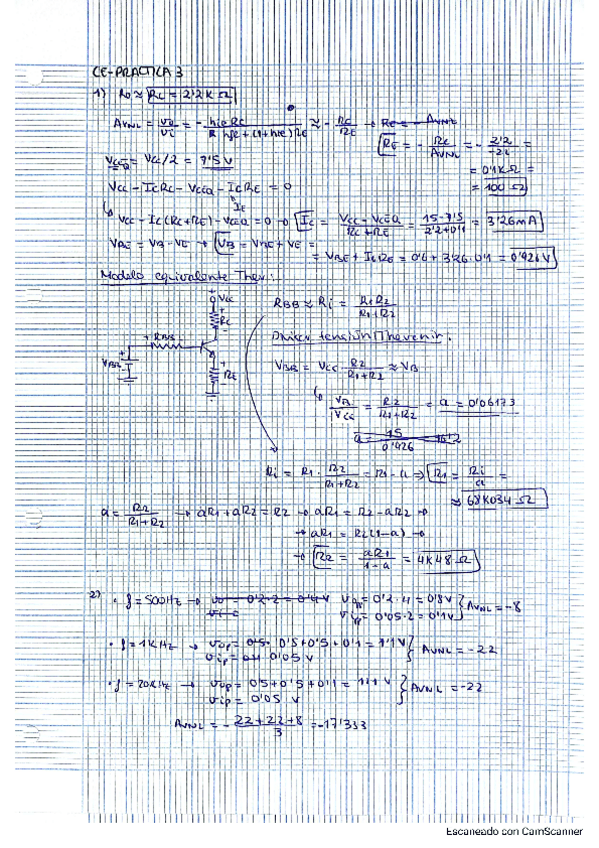 CE-PRACTICA 3
1) Ro ≈ Rc = 2'2K Ω
AVNL = vo/vi = - hfe Rc / hfe + (1+hfe) RE ≈ - Rc/RE → RE = - AVNL
RE = - Rc/AVNL = - 2'2/-22 =
= 0'1KΩ =
= 100 Ω
VCEQ = Vcc/2 = 7'5 V
Vcc - IcRc - VCEQ - IcRE = 0
IE
Vcc - Ic(Rc+RE) - VCEQ = 0 → Ic = Vcc - VCEQ / Rc+RE = 15-7'5 / 2'2+0'1 = 3'26mA
VBE = VB - VE → VB = VBE + VE =
= VBE + IcRE = 0'6 + 3'26·0'1 = 0'926 V
Modelo equivalente Thev:
Vcc
Rc
RBB
VBB
RE
RBB ≈ Ri = R1R2 / R1+R2
Divisor tensión Thevenin:
VBB = Vcc · R2 / R1+R2 ≈ VB
VB/Vcc = R2 / R1+R2 = a = 0'06173
a = 15 / 0'926
Ri = R1 · R2 / R1+R2 = R1 · a ⇒ R1 = Ri/a =
≈ 68K034 Ω
a = R2 / R1+R2 → aR1 + aR2 = R2 → aR1 = R2 - aR2 →
→ aR1 = R2(1-a) →
→ R2 = aR1 / 1-a = 4K48 Ω
2) · f = 500Hz → vo = 0'2·2 = 0'4V vop = 0'2·4 = 0'8V } AVNL = -8
vip = 0'05·2 = 0'1V
· f = 1KHz → vop = 0'5 · 0'5 + 0'5 + 0'1 = 1'1V } AVNL = -22
vip = 0'05 V
· f = 20KHz → vop = 0'5 + 0'5 + 0'1 = 1'1 V } AVNL = -22
vip = 0'05 V
AVNL = - 22+22+8 / 3 = -17'333
Escaneado con CamScanner